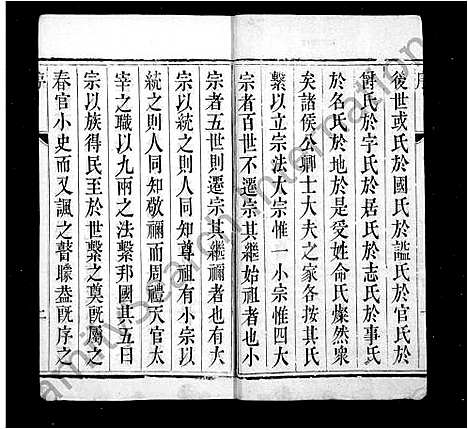 序
後世或氏於國氏於謚氏於官氏於
爵氏於字氏於居氏於志氏於事氏
於名氏於地於是受姓命氏燦然衆
矣諸侯公卿士大夫之家各按其氏
繫以立宗法大宗惟一小宗惟四大
宗者百世不遷宗其繼始祖者也小
宗者五世則遷宗其繼禰者也有大
宗以統之則人同知尊祖有小宗以
統之則人同知敬禰而周禮天官太
宰之職以九兩之法繫邦國其五曰
宗以族得民至於世繫之奠旣屬之
春官小史而又諷之瞽矇葢旣序之
序
二